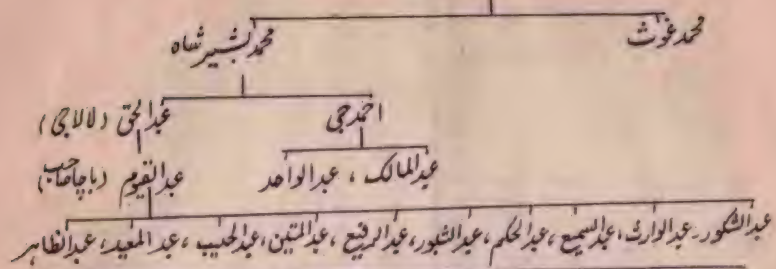 محمد غوث محمد بشیر شاہ
احمد جی عبدالحق (لالاجی)
عبدالمالک ، عبدالواحد عبدالقیوم (باچاصاحب)
عبدالشکور۔ عبدالوارث، عبدالسمیع ، عبدالحکم، عبدالشبور، عبدالرفیع ، عبدالمتین، عبدالحسیب ، عبدالمعید، عبدالظاہر